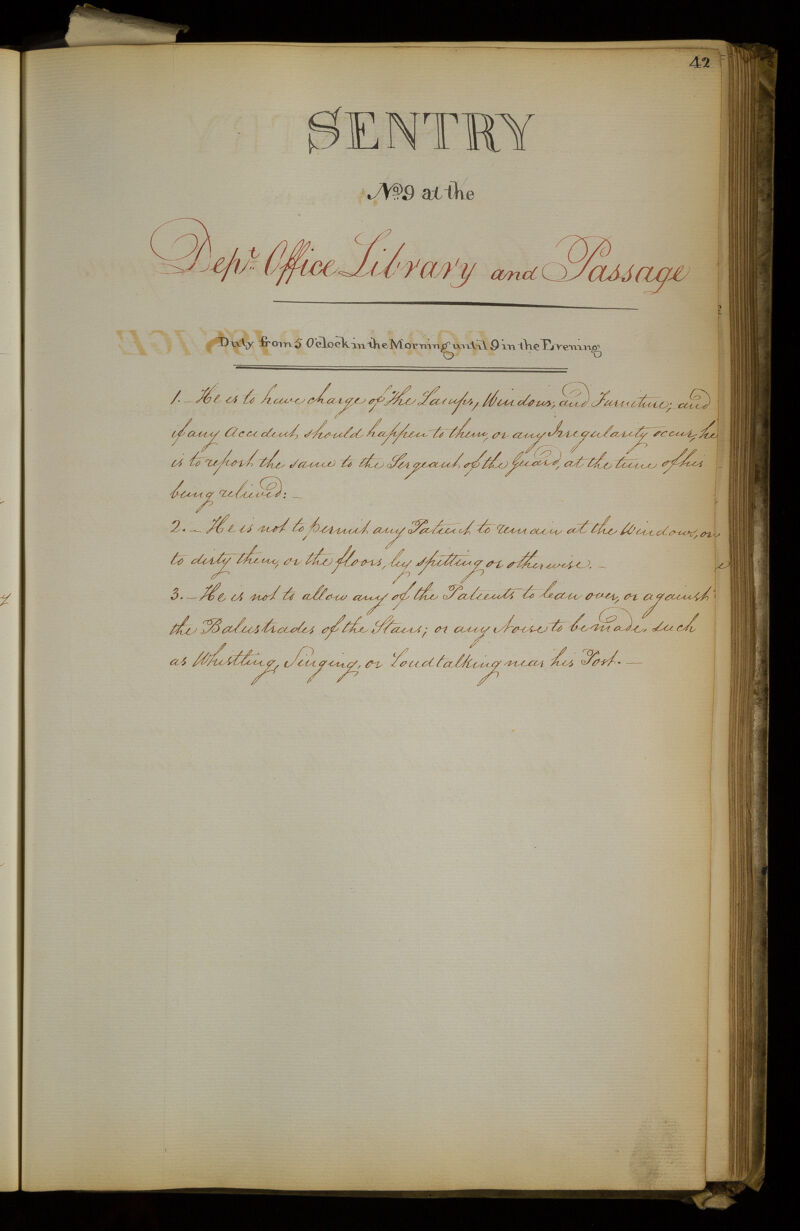 42
SENTRY
No. 9 at the
Dept. Office Library and Passage
Duty from 5 Oclock in the Morning until 9 in the Evening
1. — He is to have charge of the Lamps, Windows, and Furniture; and
if any Accident should happen to them, or any Irregularity occur, he
is to report the same to the Sergeant of the Guard, at the time of his
being relieved: —
2. — He is not to permit any Patient to remain at the Windows, or
to dirty them, or the floors, by spitting or otherwise. —
3. — He is not to allow any of the Patients to lean over, or against
the Balustrades of the Stairs; or any Noise to be made, such
as Whistling, Singing, or Loud talking near his Post. —